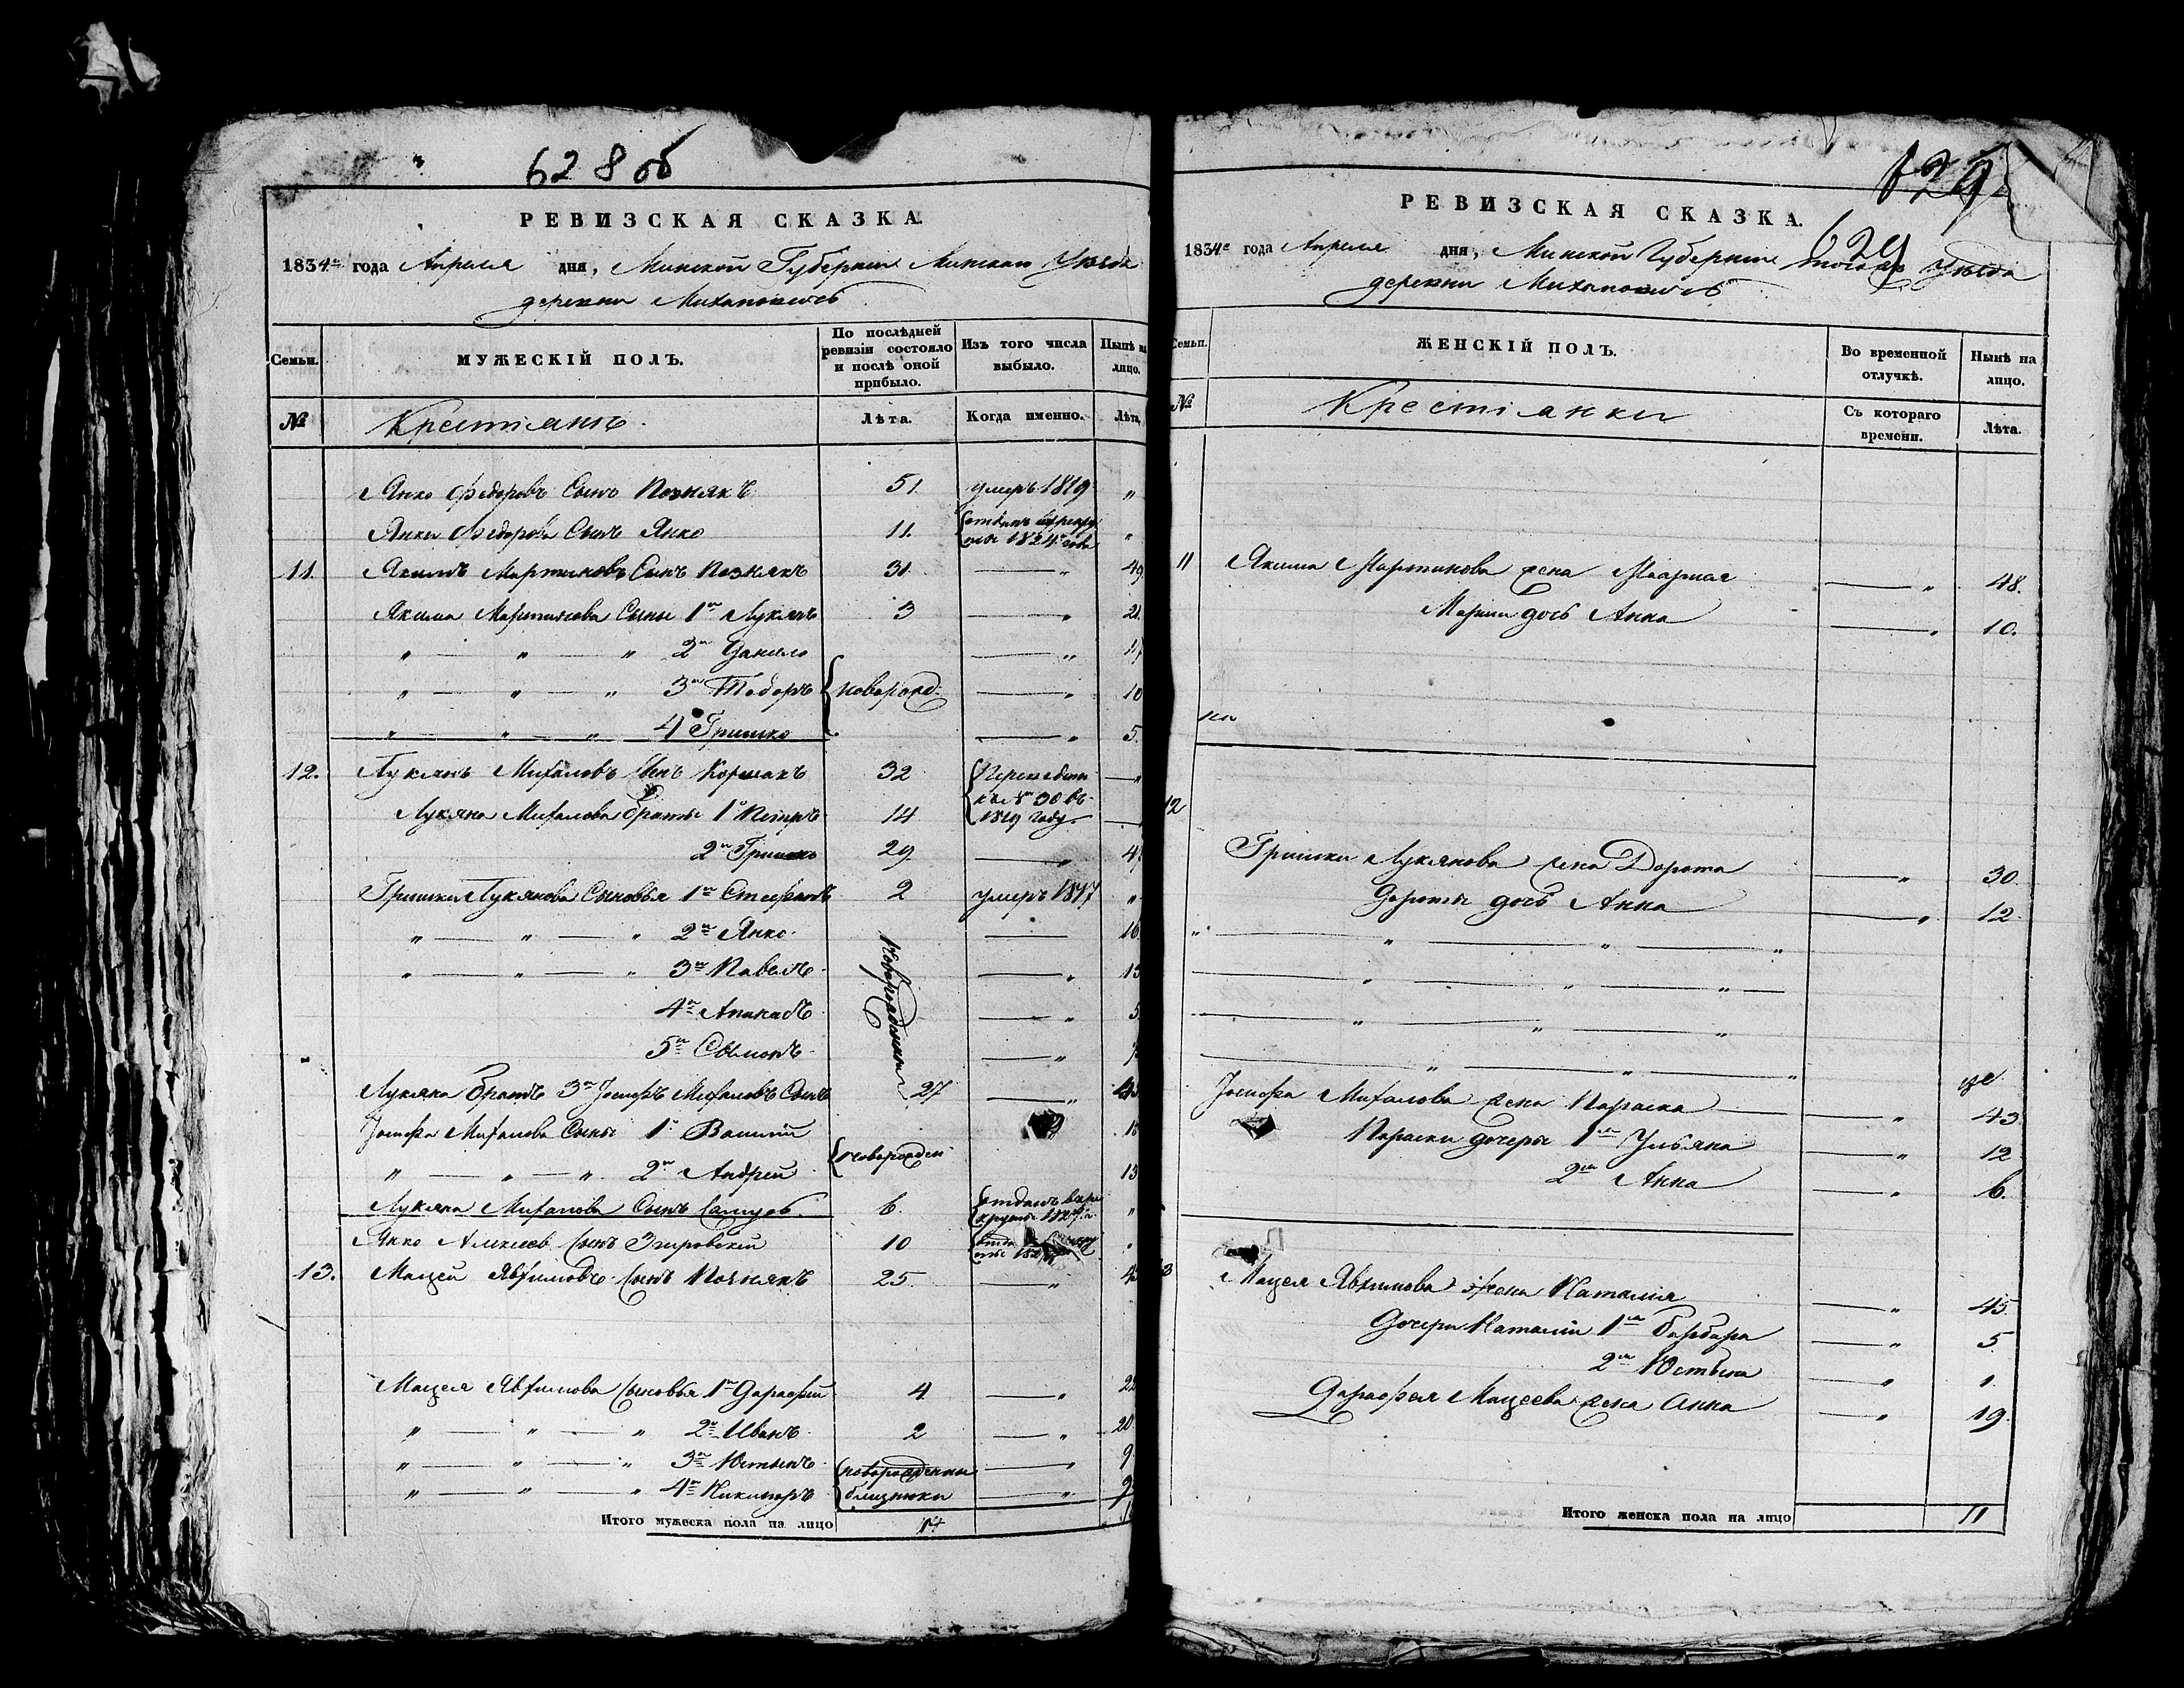 628 об
РЕВИЗСКАЯ СКАЗКА.
1834го года Апреля дня, Минской Губернии Минскаго Уѣзда
деревни Михановичъ
Семьи. МУЖЕСКІЙ ПОЛЪ. По послѣдней ревизіи состояло и послѣ оной прибыло. Изъ того числа выбыло. Нынѣ на лицо.
№ Крестьянъ Лѣта. Когда именно. Лѣта.
Янко Федоровъ Сынъ Познякъ 51. умеръ 1819 "
Янки Федорова Сынъ Янко 11. отданъ 1824го года "
11. Якимъ Мартиновъ Сынъ Познякъ 31 — " 49
Якима Мартинова Сыны 1й Лукянъ 3 — " 21.
" — " — " 2й Данило — " 17
" — " — " 3й Тодоръ новорожд: — " 10
" — " — " 4 Гришко — " 5.
12. Лукянъ Михаловъ Сынъ Коршакъ 32 Переведены "
Лукяна Михалова братья 1й Петръ 14 къ № 30 въ 1819 году —
2й Гришко 29 — "
Гришки Лукянова Сыновья 1й Стефанъ 2 умеръ 1817 "
" — " — " 2й Янко Новорожденны — 16
" — " — " 3й Павелъ — " 13
4й Апанасъ — " 5
5й Сымонъ — "
Лукяна братъ 3й Іосифъ Михаловъ Сынъ 27 — "
Іосифа Михалова Сыны 1й Василій новорожден
" — " — " 2й Андрей 13
Лукяна Михалова Сынъ Самусь 6. отданъ в рекруты "
Янко Алексеев Сынъ Згировский 10 "
13. Мацей Явхимовъ Сынъ Познякъ 25. — "
Мацея Явхимова Сыновья 1й Дарафей 4 — " 22
" — " — " 2й Иванъ 2 — " 20
" — " — " 3й Юстынъ новорожденны — " 9
" — " — " 4й Никипоръ близнюки — " 9
Итого мужеска пола на лицо
629
РЕВИЗСКАЯ СКАЗКА.
629
1834е года Апреля дня, Минской Губернии Уѣзда
деревни Михановичъ
Семьи. ЖЕНСКІЙ ПОЛЪ. Во временной отлучкѣ. Нынѣ на лицо.
№ Крестьянки Съ котораго времени. Лѣта.
11 Якима Мартинова жена Марья — " 48.
Марьи дочь Анна — " 10.
12
Гришки Лукянова жена Дорота — " 30.
Дороты дочь Анна — " 12.
" — " — " — "
— " — " — " —
— " — " — "
— " — " — "
Іосифа Михалова жена Параска — " 43
Параски дочеры 1я Ульяна — " 12
2я Анна — " 6.
Мацея Явхимова жена Наталия — " 45.
Дочери Наталіи 1я Барбара — " 5
2я Юстына — " 1.
Дарафея Мацеева жена Анна — " 19.
Итого женска пола на лицо 11